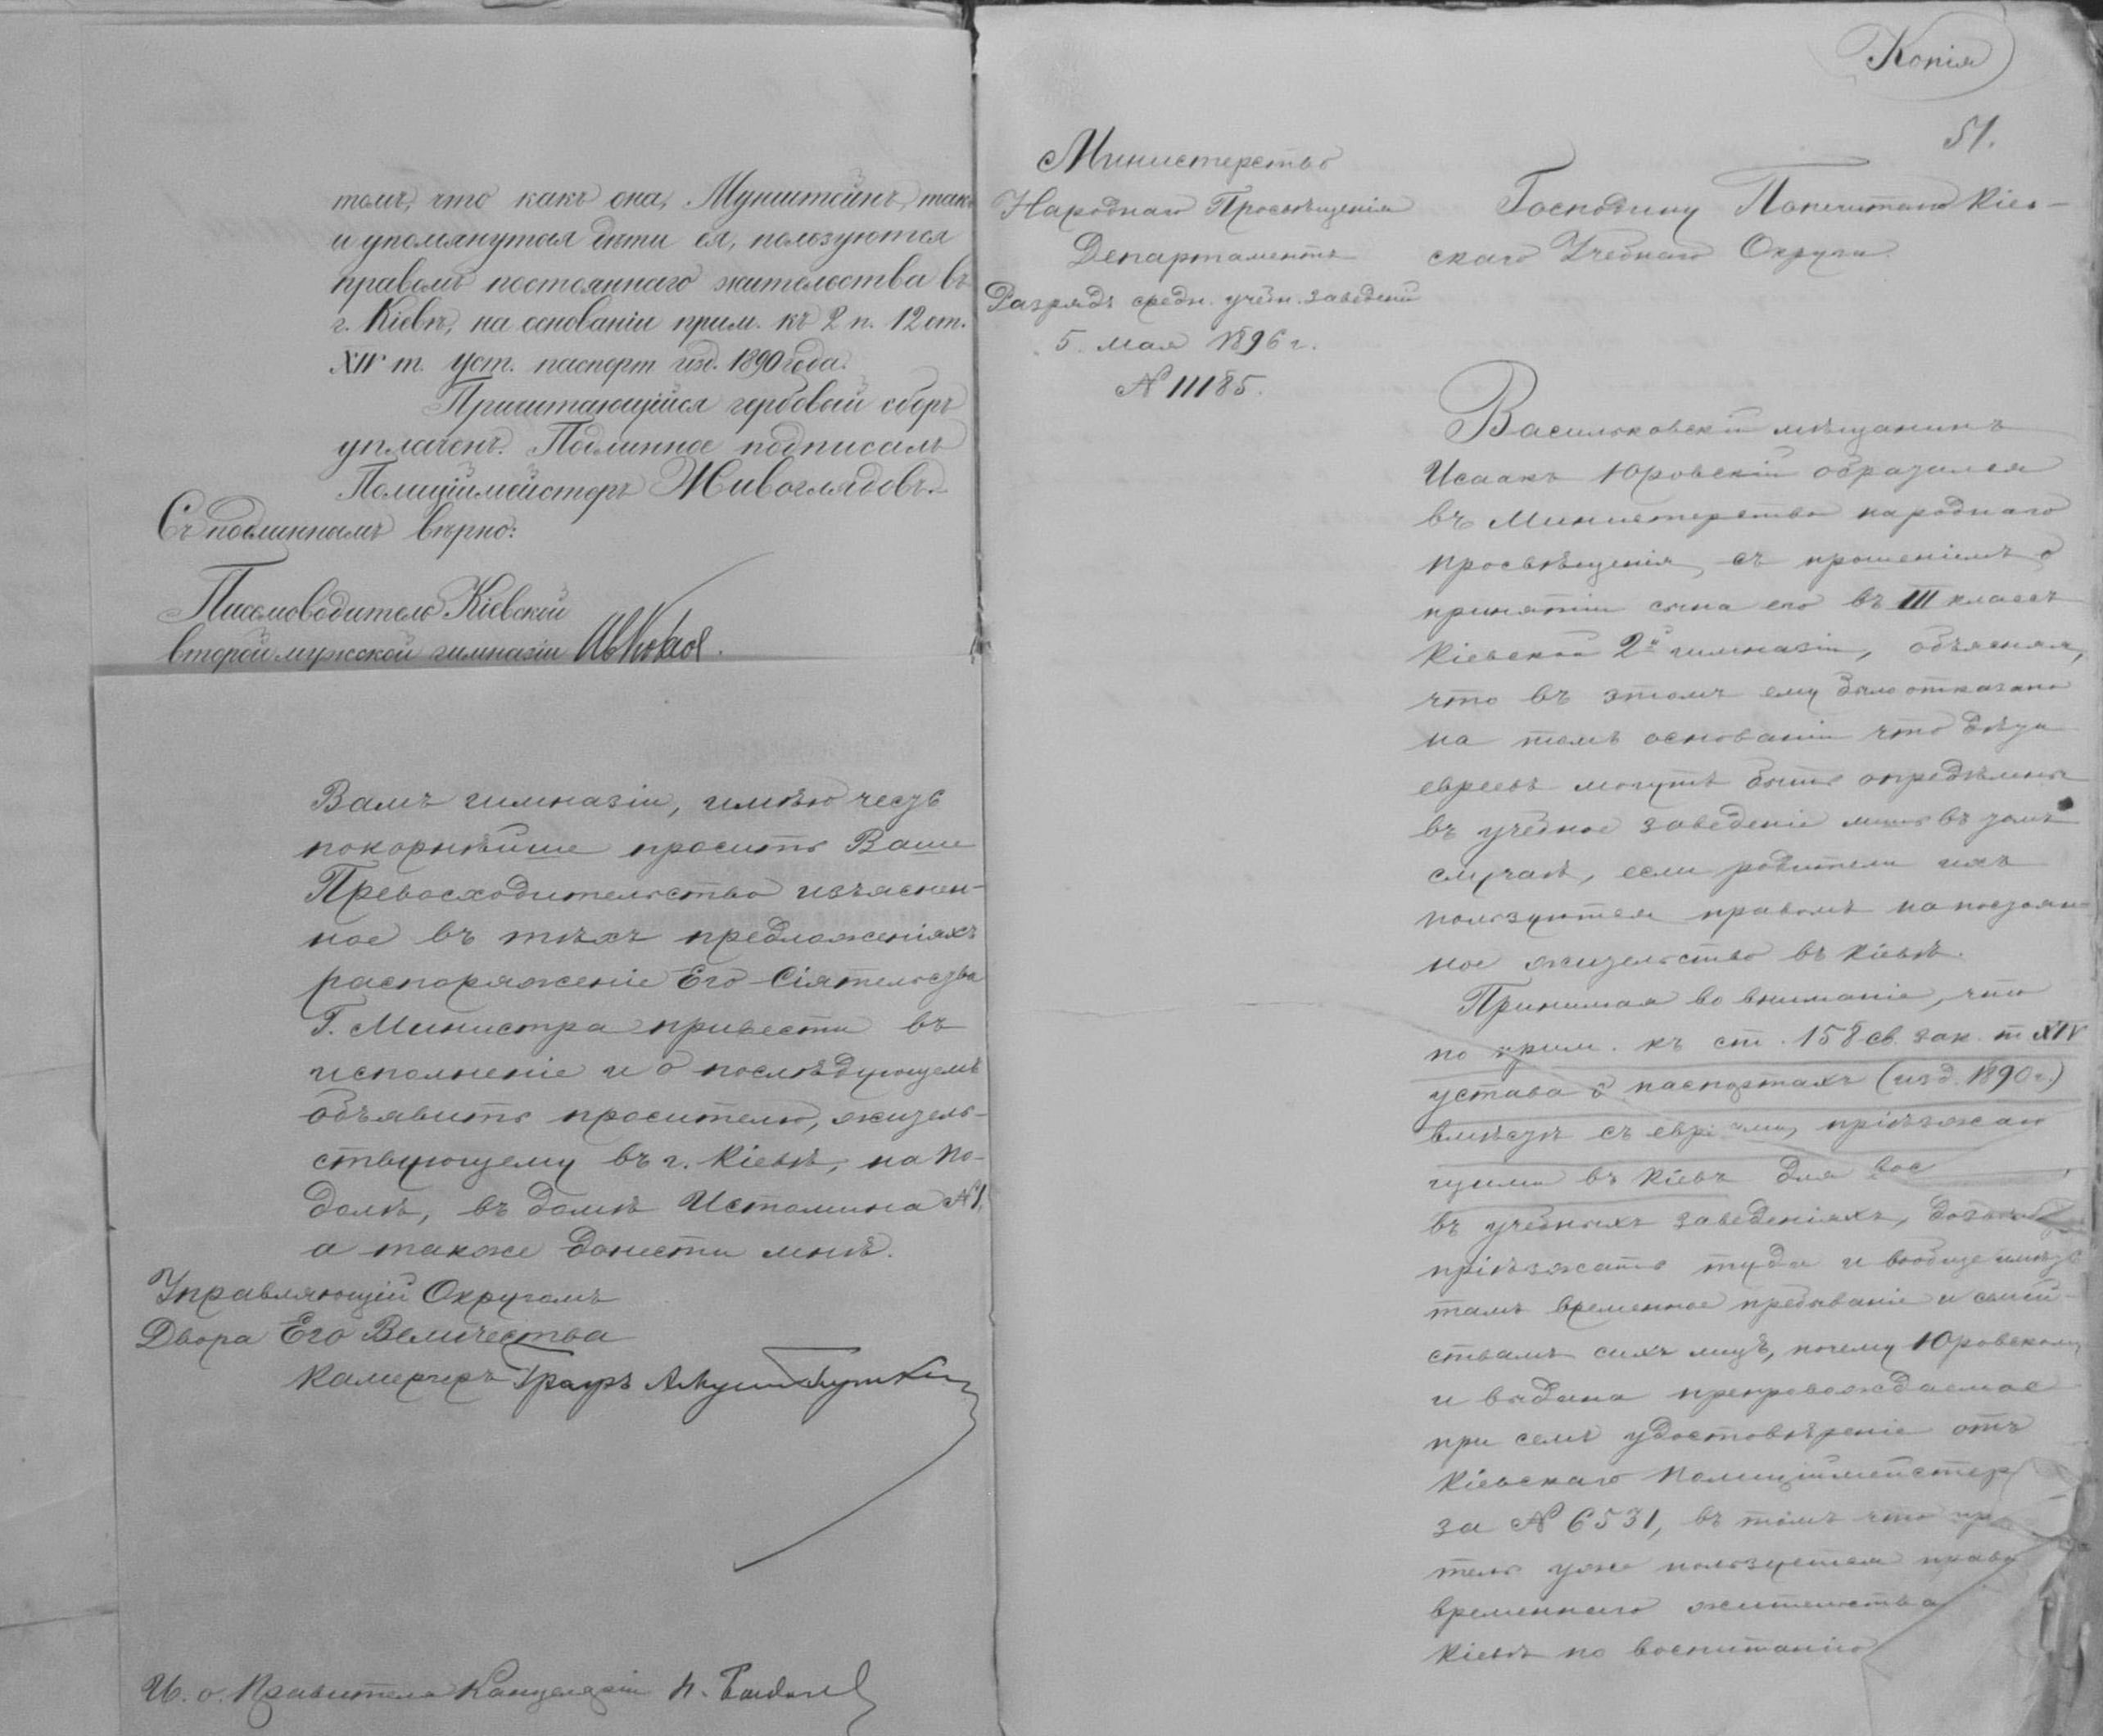 томъ, что какъ она, Мунштейнъ, такъ
и упомянутыя дѣти ея, пользуются
правомъ постояннаго жительства въ
г. Кіевѣ, на основаніи прим. къ 2 п. 12 ст.
XIV т. Уст. паспорт изд. 1890 года.
Причитающійся гербовый сборъ
уплаченъ. Подлинное подписалъ
Полиціймейстеръ Живоглядовъ.
Съ подлиннымъ вѣрно:
Письмоводитель Кіевской
второй мужской гимназіи
Вамъ гимназіи, имѣю честь
покорнѣйше просить Ваше
Превосходительство изъяснен-
ное въ тѣхъ предложеніяхъ
распоряженіе Его Сіятельства
Г. Министра привести въ
исполненіе и о послѣдующемъ
объявить просителю, житель-
ствующему въ г. Кіевѣ, на По-
долѣ, въ домѣ Истомина №1,
а также донести мнѣ.
Управляющій Округомъ
Двора Его Величества
Камергеръ Графъ
И. о. Правителя Канцеляріи
Копія
51.
Министерство
Народнаго Просвѣщенія
Департаментъ
Разрядъ средн. учебн. заведеній
5 мая 1896 г.
№ 11185.
Господину Попечителю Кіев-
скаго Учебнаго Округа
Васильковскій мѣщанинъ
Исаакъ Юровскій обращался
въ Министерство народнаго
просвѣщенія, съ прошеніемъ о
принятіи сына его въ III классъ
Кіевской 2й гимназіи, объясняя,
что въ этомъ ему было отказано
на томъ основаніи что дѣти
евреевъ могутъ быть опредѣлены
въ учебное заведеніе лишь въ томъ
случаѣ, если родители ихъ
пользуются правомъ на постоян-
ное жительство въ Кіевѣ.
Принимая во вниманіе, что
по прим. къ ст. 158 св. зак. т XIV
устава о паспортахъ (изд. 1890 г.)
вмѣстѣ съ евреями, пріѣзжаю
щими въ Кіевъ для вос
въ учебныхъ заведеніяхъ,
пріѣзжать туда и вообще имѣть
тамъ временное пребываніе и семей-
ствамъ сихъ лицъ, почему Юровскому
и выдано препровождаемое
при семъ удостовѣреніе отъ
Кіевскаго Полиціймейстер
за № 6531, въ томъ что пр
тель уже пользуется право
временнаго жительства
Кіевѣ по воспитанію